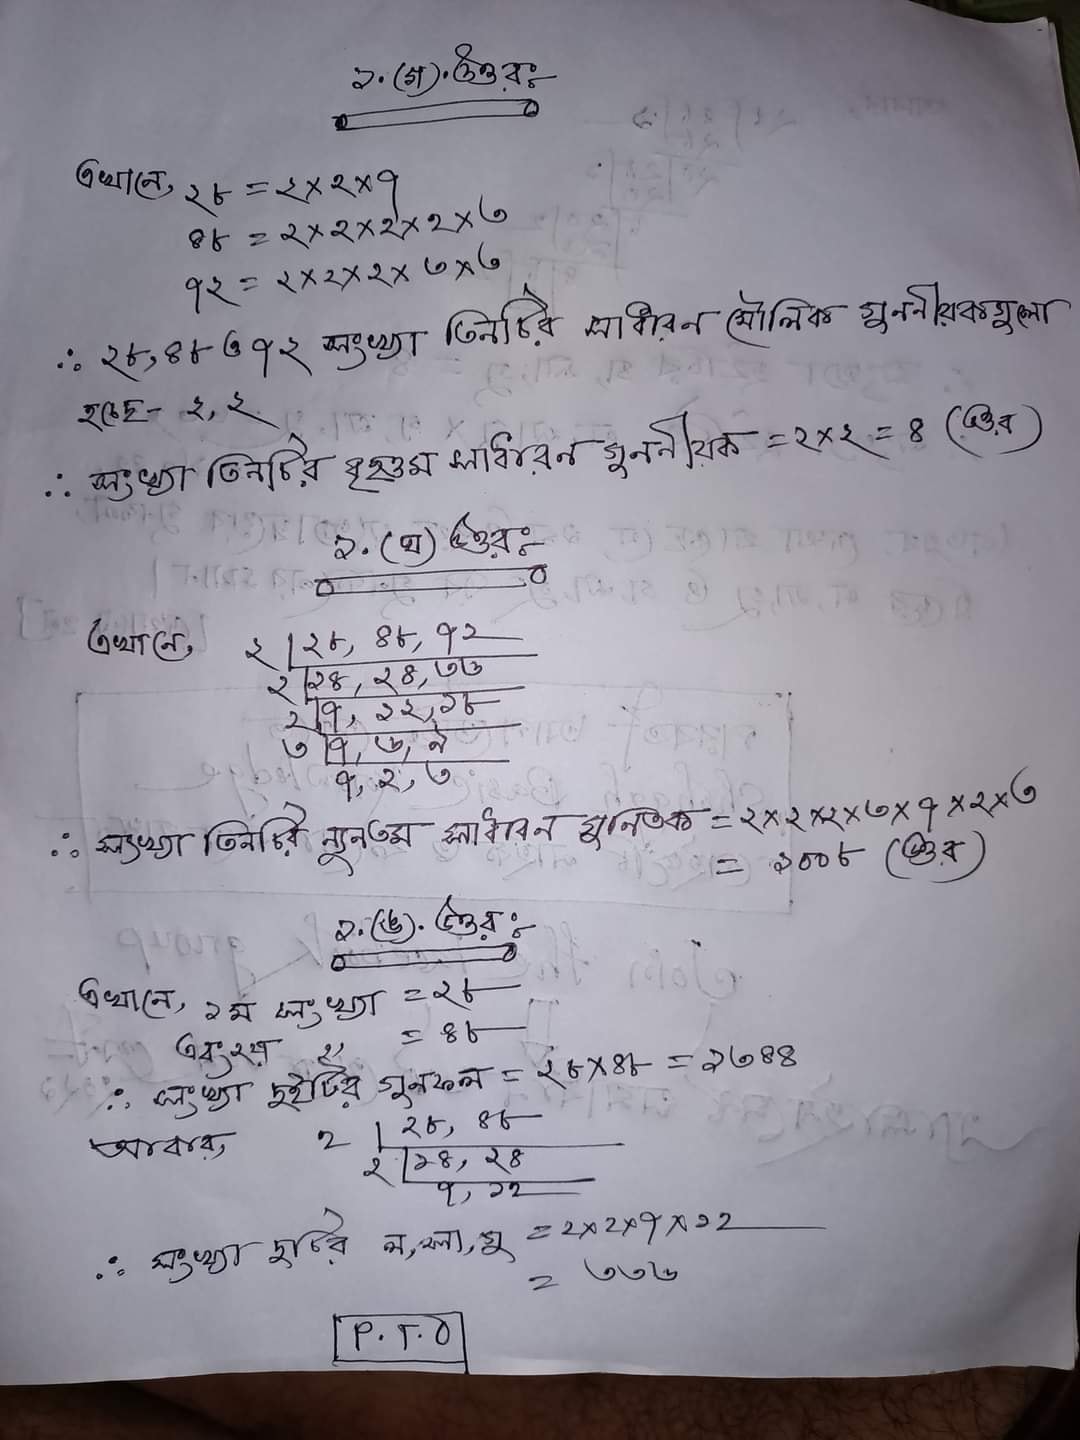 ১.(গ).উত্তরঃ
এখানে, ২৮ = ২×২×৭
৪৮ = ২×২×২×২×৩
৭২ = ২×২×২×৩×৩
∴ ২৮,৪৮ ও ৭২ সংখ্যা তিনটির সাধারন মৌলিক গুননীয়কগুলো
হচ্ছে- ২, ২
∴ সংখ্যা তিনটির বৃহত্তম সাধারন গুননীয়ক = ২×২ = ৪ (উত্তর)
১.(ঘ) উত্তরঃ
এখানে, ২ | ২৮, ৪৮, ৭২
২ | ১৪, ২৪, ৩৬
২ | ৭, ১২, ১৮
৩ | ৭, ৬, ৯
৭, ২, ৩
∴ সংখ্যা তিনটির ন্যূনতম সাধারন গুনিতক = ২×২×২×৩×৭×২×৩
= ১০০৮ (উত্তর)
১.(ঙ). উত্তরঃ
এখানে, ১ম সংখ্যা = ২৮
এবং ২য় " = ৪৮
∴ সংখ্যা দুইটির গুনফল = ২৮×৪৮ = ১৩৪৪
আবার, ২ | ২৮, ৪৮
২ | ১৪, ২৪
৭, ১২
∴ সংখ্যা দুটির ল,সা,গু = ২×২×৭×১২
= ৩৩৬
P.T.O